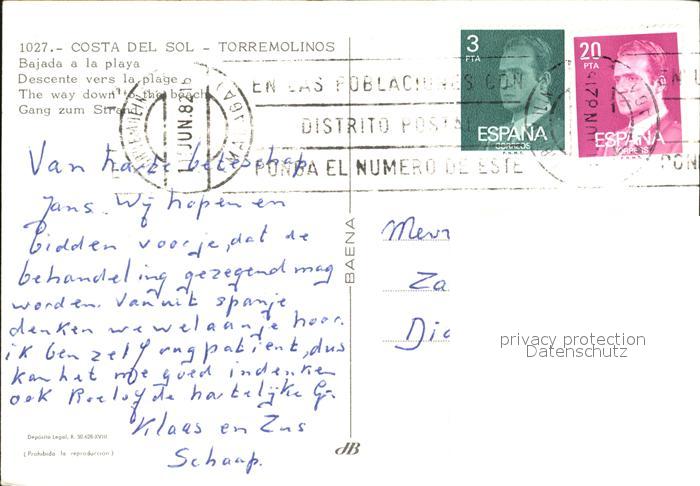 1027.- COSTA DEL SOL - TORREMOLINOS
Bajada a la playa
Descente vers la plage
The way down to the beach
Gang zum Strand
3
PTA
ESPAÑA
CORREOS
20
PTA
ESPAÑA
CORREOS
JUN.82
EN LAS POBLACIONES CON
DISTRITO POSTAL
PONGA EL NUMERO DE ESTE
Van harte beterschap
Jans. Wij hopen en
bidden voor je, dat de
behandeling gezegend mag
worden. Vanuit spanje
denken we wel aan je hoor.
ik ben zelf rugpatient, dus
kan het me goed indenken
ook Roelof de hartelijke Gr.
Klaas en Zus
Schaap.
BAENA
Mevr
Za
Di
privacy protection
Datenschutz
Depósito Legal, B. 50.428-XVIII
(Prohibida la reproducción)